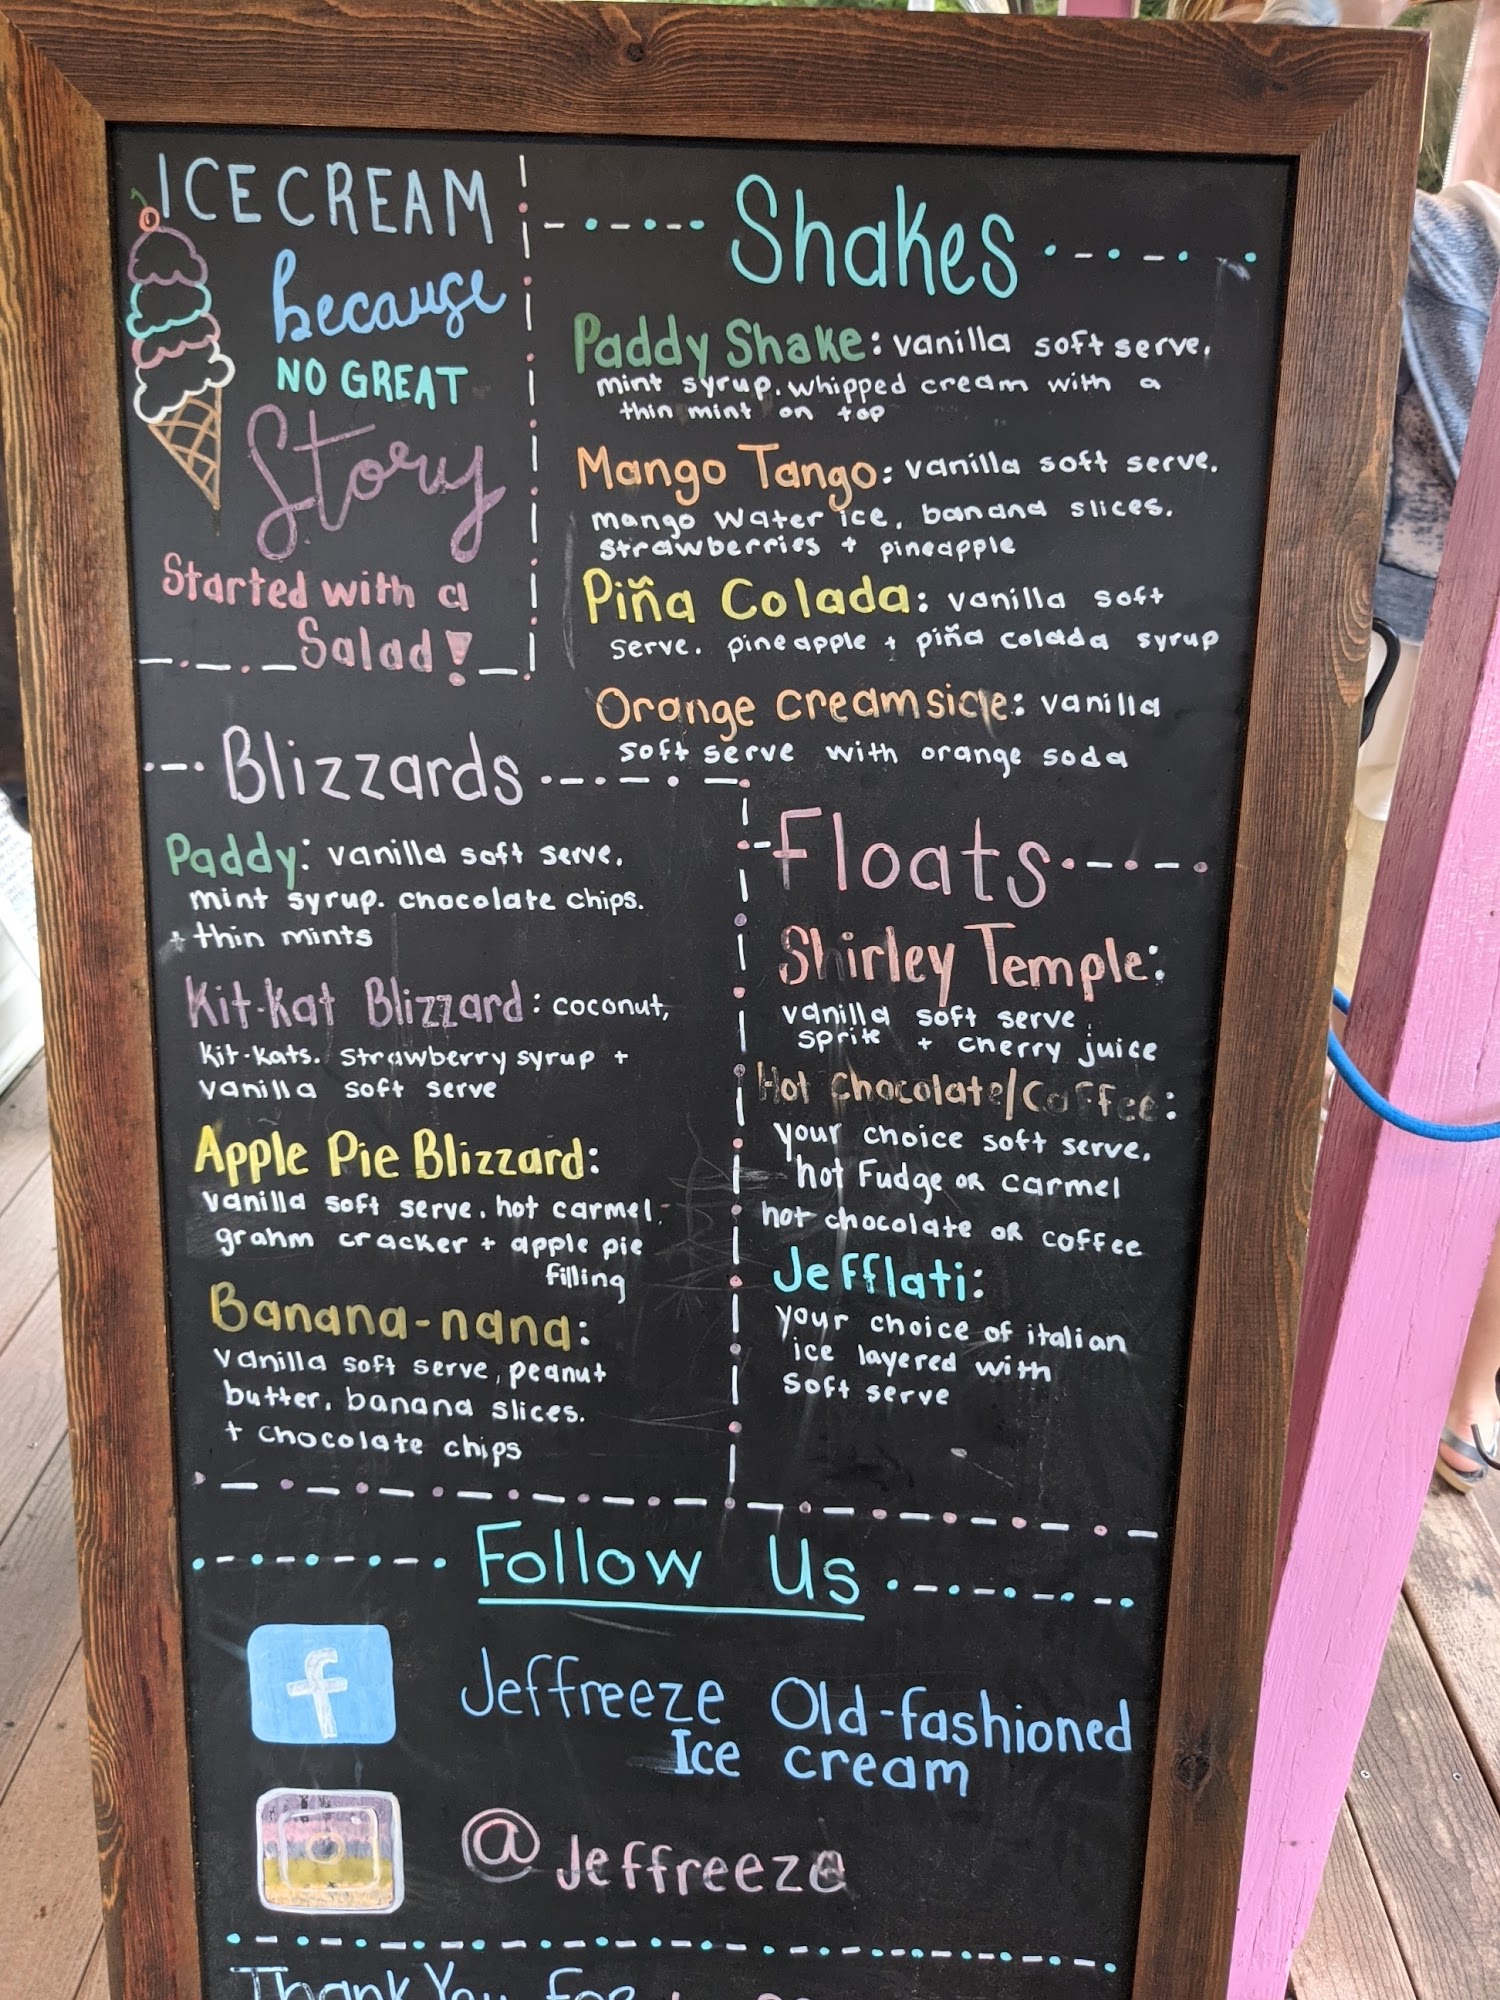 ICE CREAM
because
NO GREAT
Story
Started with a
Salad!
Shakes
Paddy Shake: vanilla soft serve,
mint syrup. whipped cream with a
thin mint on top
Mango Tango: vanilla soft serve.
mango water ice, banana slices.
strawberries + pineapple
Piña Colada: vanilla soft
serve. pineapple + piña colada syrup
Orange Creamsicle: vanilla
soft serve with orange soda
Blizzards
Paddy: vanilla soft serve.
mint syrup. chocolate chips.
+ thin mints
Kit-Kat Blizzard: coconut,
kit-kats. strawberry syrup +
vanilla soft serve
Apple Pie Blizzard:
vanilla soft serve. hot carmel.
grahm cracker + apple pie
filling
Banana-nana:
vanilla soft serve, peanut
butter. banana slices.
+ chocolate chips
Floats
Shirley Temple:
vanilla soft serve
sprite + cherry juice
Hot Chocolate/Coffee:
your choice soft serve.
hot Fudge OR carmel
hot chocolate OR coffee
Jefflati:
your choice of italian
ice layered with
soft serve
Follow Us
f
Jeffreeze Old-fashioned
Ice cream
@Jeffreeze
Thank You For